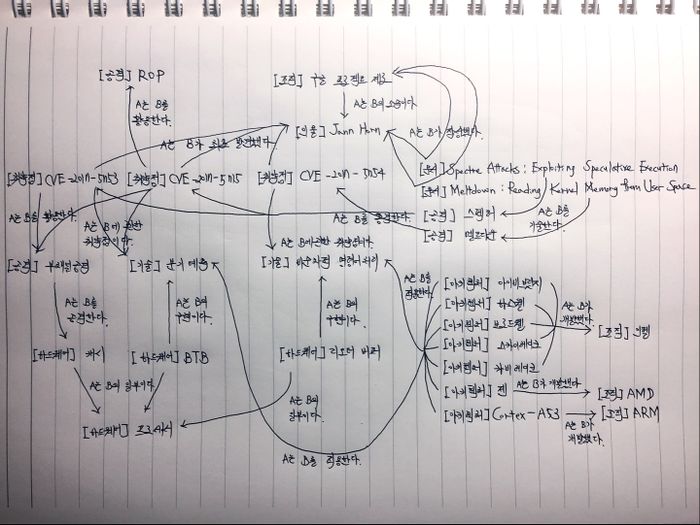 [공격] ROP
[조직] 구글 프로젝트 제로
A는 B를
활용한다.
A는 B의 소속이다.
[인물] Jann Horn
A는 B가 최초 발견했다.
A는 B가 작성했다.
[문서] Spectre Attacks: Exploiting Speculative Execution
[취약점] CVE-2017-5753
[취약점] CVE-2017-5715
[취약점] CVE-2017-5754
[문서] Meltdown: Reading Kernel Memory from User Space
A는 B를 활용한다.
A는 B에 관한
취약점이다.
[공격] 스펙터
A는 B를
기술한다.
[공격] 멜트다운
A는 B에 관한 취약점이다.
[공격] 부채널 공격
[기술] 분기 예측
[기술] 비순차적 명령어 처리
A는 B를
적용한다.
[아키텍처] 아이비브릿지
A는 B를
공격한다.
A는 B의
구현이다.
A는 B의
구현이다.
[아키텍처] 하스웰
A는 B가
개발했다.
[아키텍처] 브로드웰
[조직] 인텔
[하드웨어] 캐시
[하드웨어] BTB
[하드웨어] 리오더 버퍼
[아키텍처] 스카이레이크
[아키텍처] 카비레이크
A는 B의 일부이다.
A는 B의
일부이다.
[아키텍처] 젠
A는 B가 개발했다.
[조직] AMD
[아키텍처] Cortex-A53
[조직] ARM
A는 B가
개발했다.
[하드웨어] 프로세서
A는 B를 적용한다.